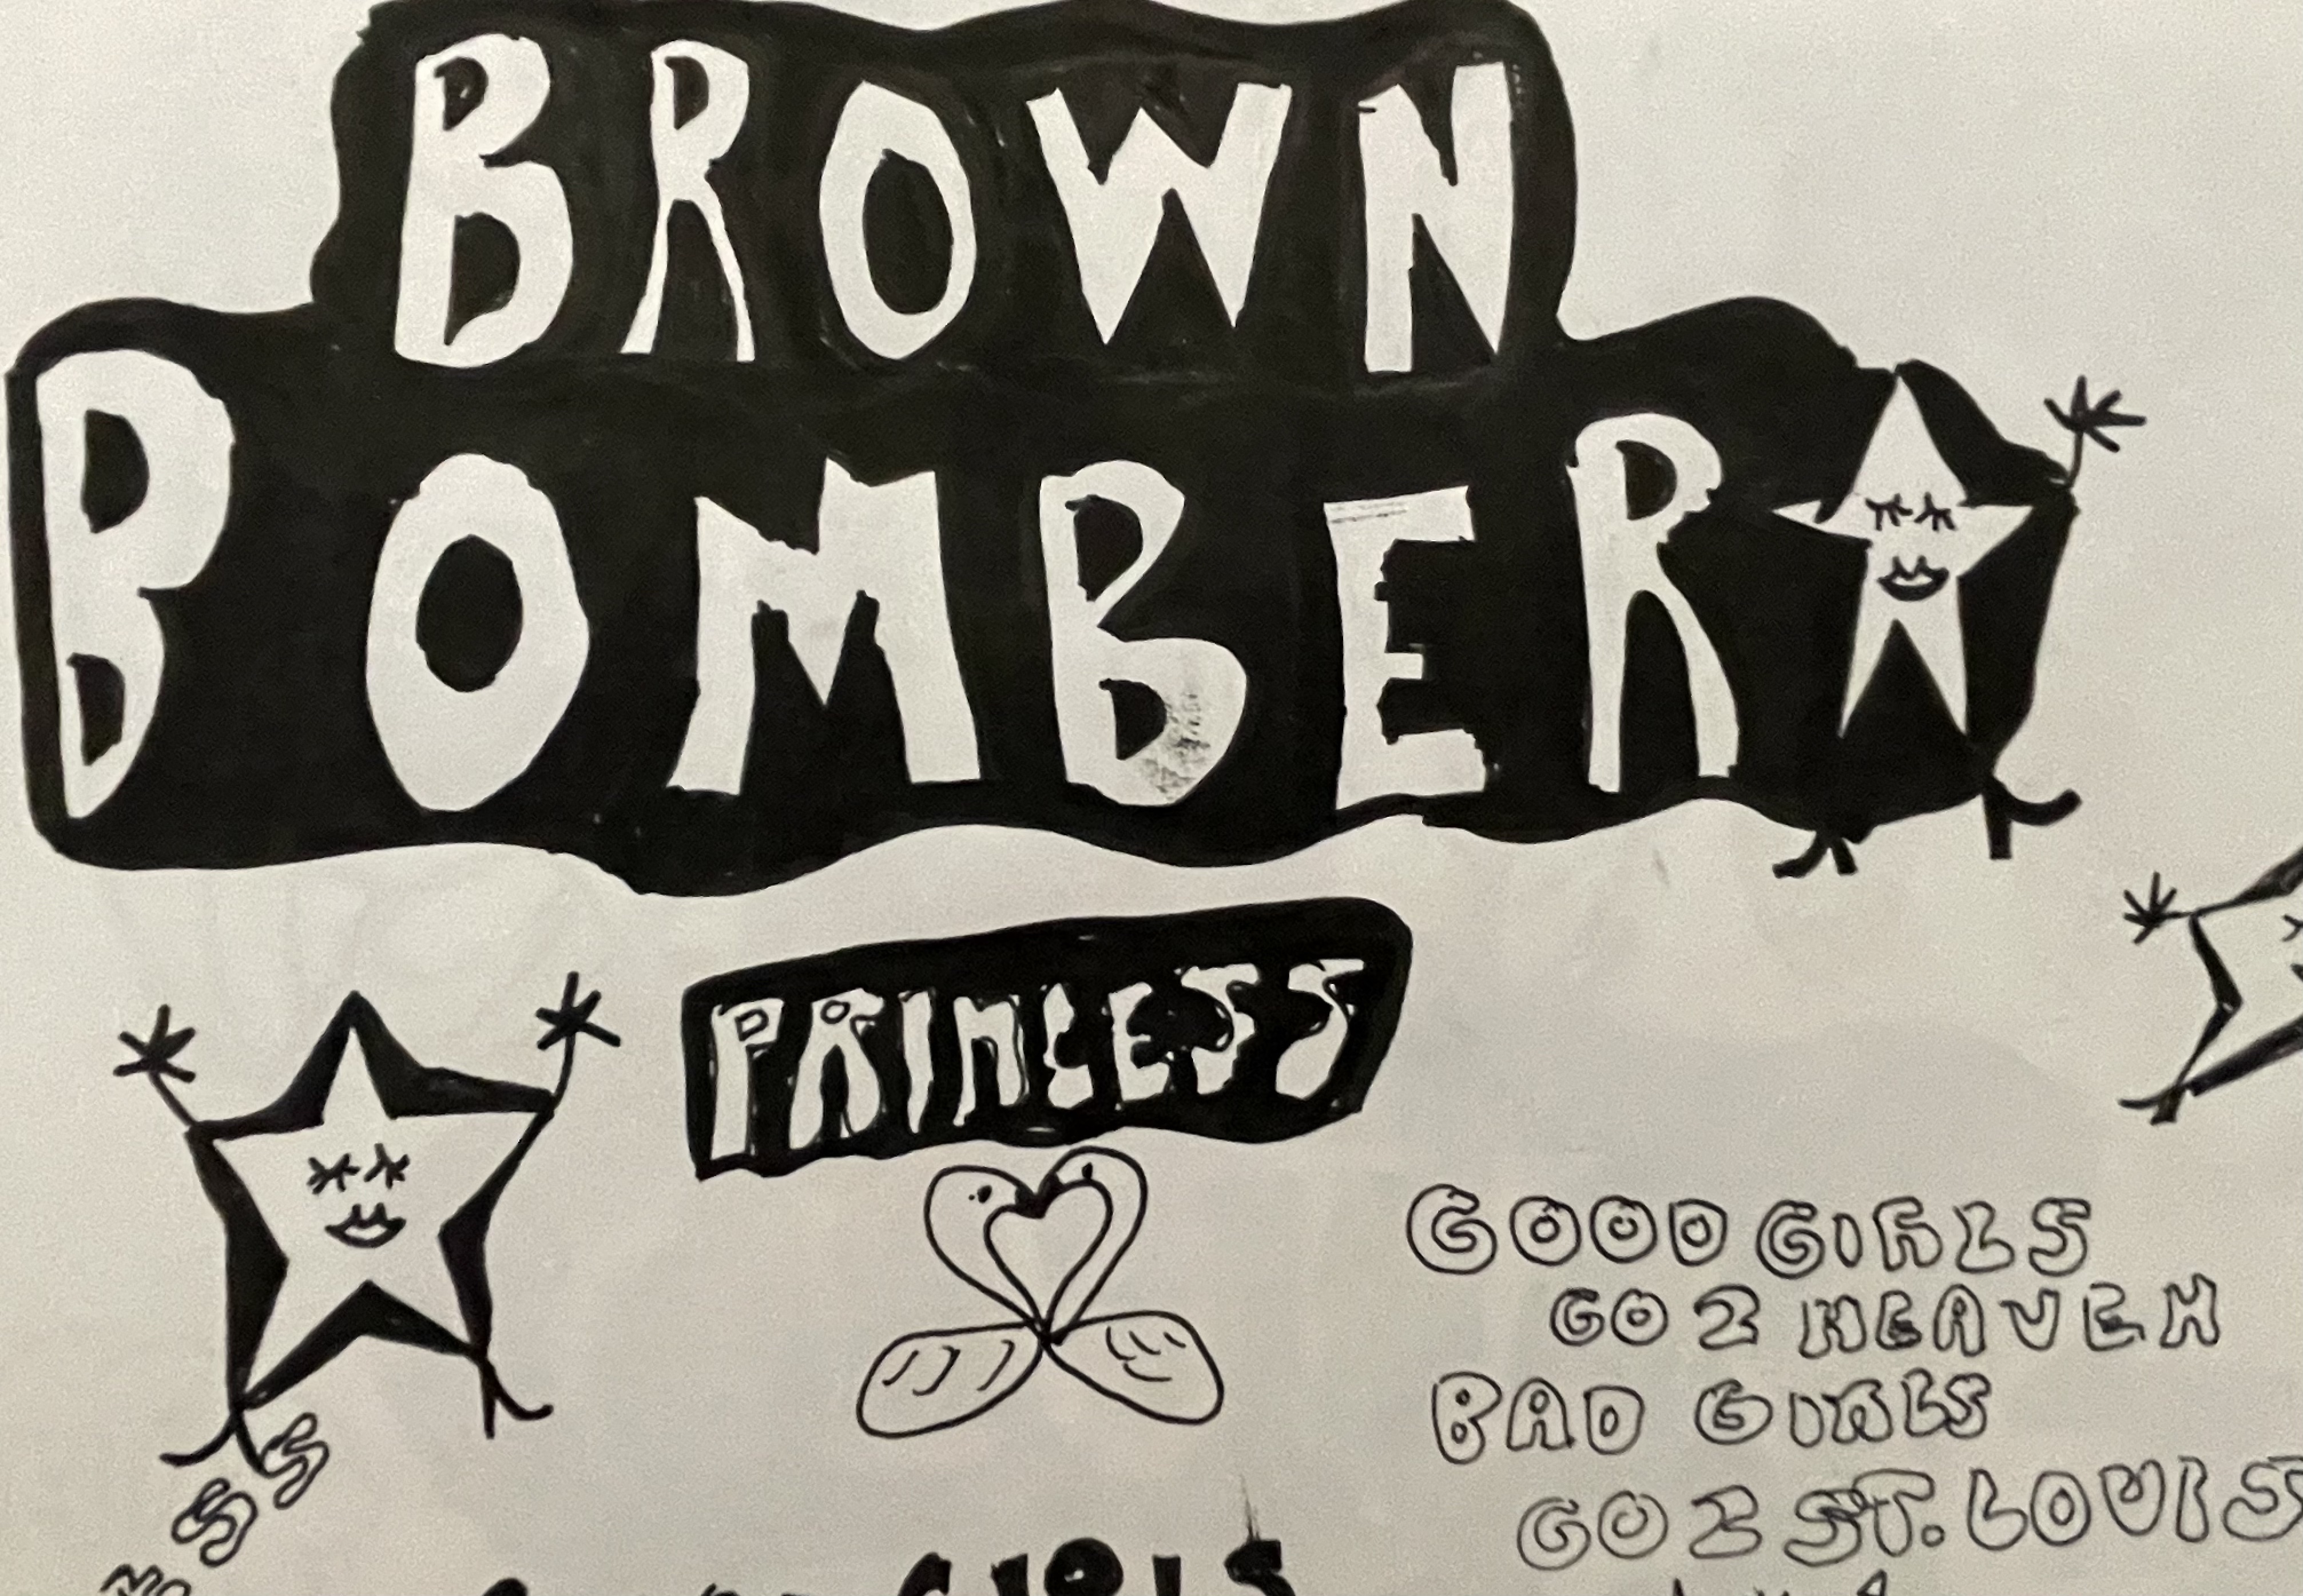 BROWN
BOMBER
PRINCESS
GOOD GIRLS
GO 2 HEAVEN
BAD GIRLS
GO 2 ST. LOUIS